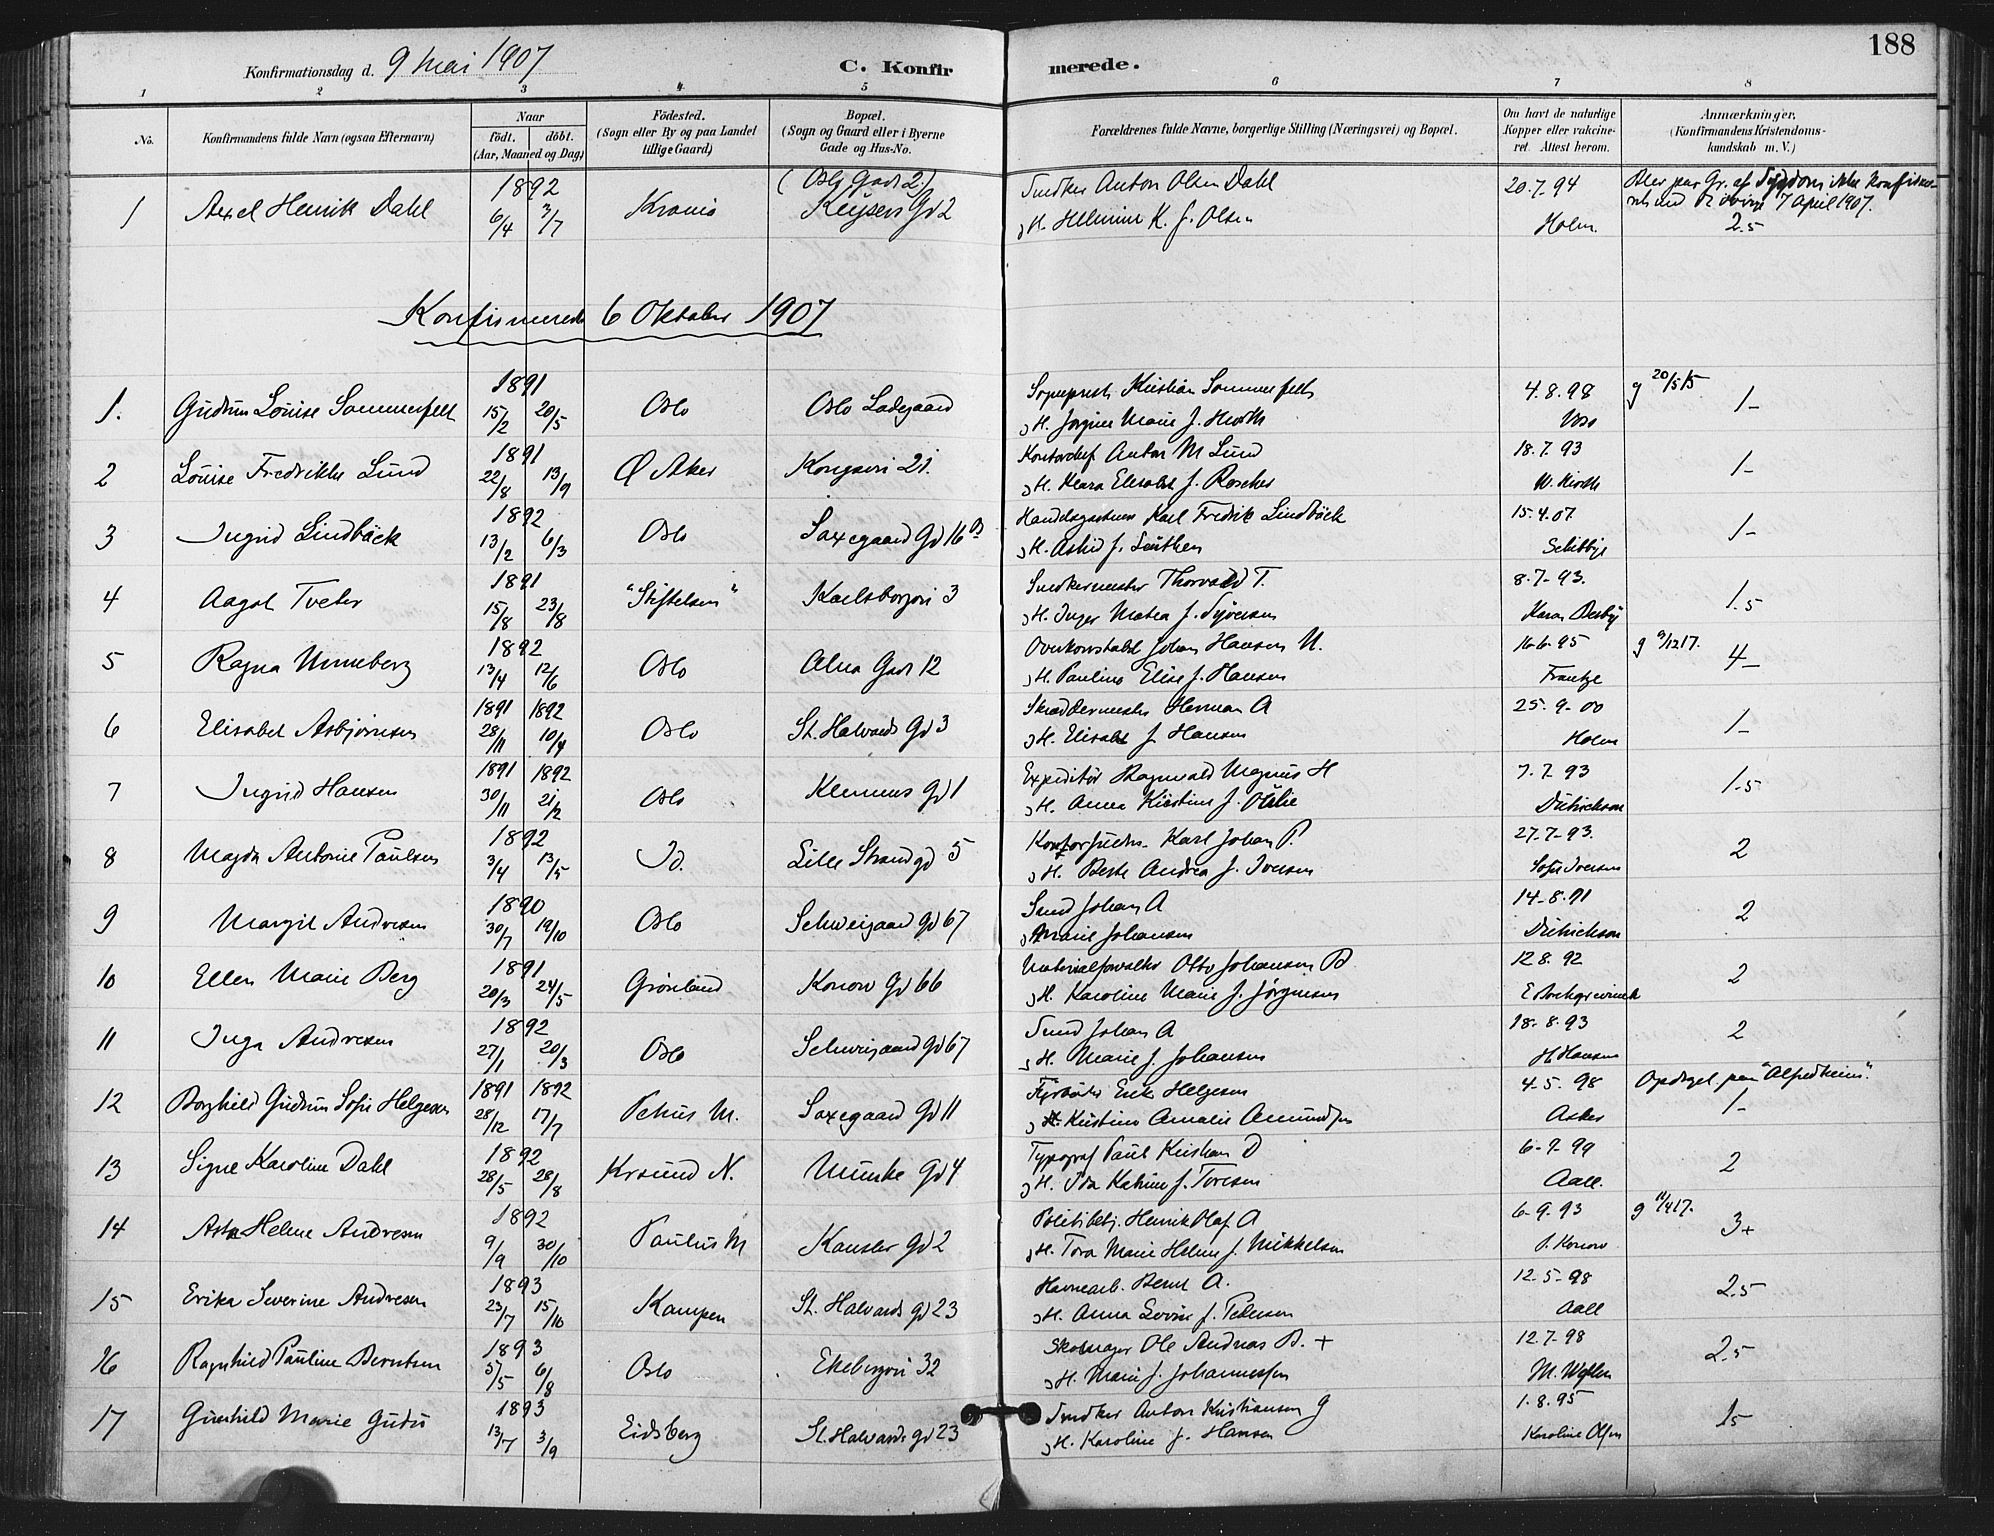 188
Konfirmationsdag d. 9 Mai 1907 C. Konfirmerede.
1 2 3 4 5 6 7 8
No. Konfirmandens fulde Navn (ogsaa Efternavn) Naar født. døbt. (Aar, Maaned og Dag) Fødested. (Sogn eller By og paa Landet tillige Gaard) Bopæl. (Sogn og Gaard eller i Byerne Gade og Hus-No. Forældrenes fulde Navne, borgerlige Stilling (Næringsvei) og Bopæl. Om havt de naturlige Kopper eller vakcineret. Attest herom. Anmærkninger. (Konfirmandens Kristendomskundskab m. V.)
1892 (Oslo Gade 2) Snedker Anton Olsen Dahl 20.7.94 Blev paa Gr. af Sygdom ikke Konfirme-
1 Axel Henrik Dahl 6/4 3/7 Krania Keysers Gd 2 H. K. f. Olsen Holm. ret med de øvrige 7 April 1907. 2.5
Konfirmerede 6 Oktober 1907
1891 Sogneprest Kristian Sommerfelt 4.8.98 g 20/5 15.
1. Gudrun Louise Sommerfelt 15/2 20/5 Oslo Oslo Ladegaard H. Jørgine Marie f. Voss 1-
1891 Kontorchef Anton M Lund 18.7.93
2 Louise Fredrikke Lund 22/8 13/9 Ø Aker Kongsvei 21. H. Klara Elisabet f. 1-
1892 Karl Fredrik Lindbäck 15.4.07.
3 Ingrid Lindbäck 13/2 6/3 Oslo Saxegaard Gd 16 H. f. Schibbye 1-
1891 Snedkermester Thorvald T. 8.7-93.
4 Aagot Tveter 15/8 23/8 "Stiftelsen" Karlsborgvei 3 H. Inger Matea f. Syversen Karen 1.5
1892 Overkonstabel Johan Hansen U. 16-6-95 g 9/12 17.
5 Ragna Unneberg 13/4 12/6 Oslo Alna Gade 12 H. Pauline Elise f. Hansen Frantze 4-
1891 1892 Skræddermester Herman A 25-9-00
6 Elisabet Asbjørnsen 28/11 10/4 Oslo St. Halvards Gd 3 H. Elisabet f Hansen Holm 1-
1891 1892 Expeditør Ragnvald Magnus H 7.7.93
7 Ingrid Hansen 30/11 21/2 Oslo Klemens Gd 1 H. Anna Kirstine f. Didrichson 1-5
1892 Karl Johan P. 27-7-93.
8 Magda Antonie Paulsen 3/4 13/5 Id. Lille Strandgd 5 H. Andrea f. Iversen Sofie Iversen 2
1890 Smed Johan A 14-8.91
9 Margit Andresen 30/7 19/10 Oslo Schweigaard Gd 67 Marie Johansen Didrichson 2
1891 Materialforvalter Otto Johansen B 12 8. 92
10 Ellen Marie Berg 20/3 24/5 Grønland Konow Gd 66 H. Karoline Marie f. Jørgensen E Borchgrevink 2
1892 Smed Johan A 18-8.93
11 Inga Andresen 27/1 20/3 Oslo Schweigaard Gd 67 H. Marie f. Johansen H Hansen 2
1891 1892 Fyrbøder Erik Helgesen 4-5. 98 Opdraget paa "Alfredheim".
12 Borghild Gudrun Sofie Helgesen 28/12 17/7 Petrus M. Saxegaard Gd 11 Kristine Amalie Amundsen Asker 1-
1892 Typograf Paul Kristian D 6-7-99
13 Signe Karoline Dahl 28/5 28/8 Krsund N. Munke Gd 4 H. Ida Katrine f. Toresen Aall. 2
1892 Politibetj. Henrik Olaf A 6-9.93 g 11/4 17.
14 Asta Helene Andresen 9/9 30/10 Paulus M Kansler Gd 2 H. Tora Marie Helene f. Mikkelsen P. Konow 3+
1893 Havnearb. Bernt A. 12-5-98
15 Erika Severine Andresen 23/7 15/10 Kampen St. Halvards Gd 23 H. Anna f. Pedersen Aall 2.5
1893 Skomager Ole Andreas B. + 12.7-98
16 Ragnhild Pauline Berntsen 5/5 6/8 Oslo Ekebergvei 32 H. Marie f. Johannessen M. 2.5
1893 Snedker Anton Kristiansen G 1.8.95
17 Gunhild Marie Gudu 13/7 3/9 Eidsberg St. Halvards Gd 23 H. Karoline f. Hansen Karoline Olsen 1.5